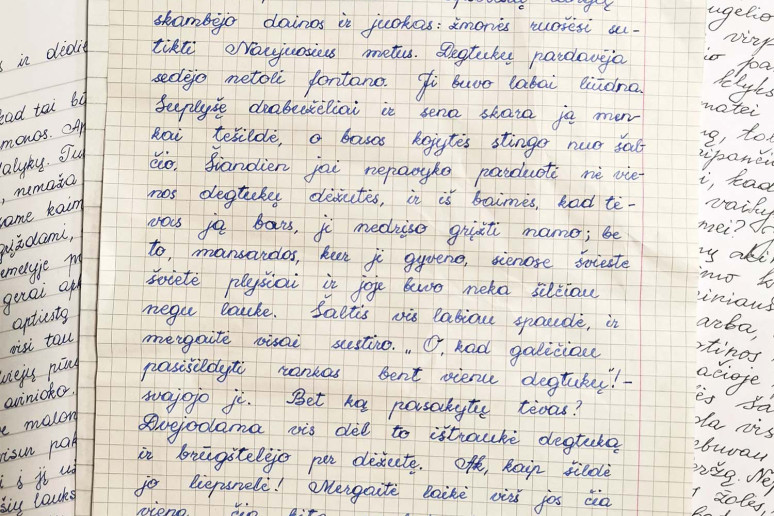 skambėjo dainos ir juokas: žmonės ruošėsi su-
tikti Naujuosius metus. Degtukų pardavėja
sedėjo netoli fontano. Ji buvo labai liūdna.
Suplyšę drabužėliai ir sena skara ją men
kai tešildė, o basos kojytės stingo nuo šal
čio. Šiandien jai nepavyko parduoti nė vie-
nos degtukų dėžutės, ir iš baimės, kad tė-
vas ją bars, ji nedrįso grįžti namo; be
to, mansardos, kur ji gyveno, sienose švieste
švietė plyšiai ir joje buvo neka šilčiau
negu lauke. Šaltis vis labiau spaudė, ir
mergaitė visai sustiro. „O, kad galėčiau
pasišildyti rankas bent vienu degtuku“! -
svajojo ji. Bet ką pasakytų tėvas?
Dvejodama vis dėl to ištraukė degtuką
ir brūgštelėjo per dėžutę. Ak, kaip šildė
jo liepsnelė! Mergaitė laikė virš jos čia
vieną, čia kitą
ir dėdie
kad tai bū
monos. Ap
alykų. Tu
, nemaža
ame kaim
grįždami,
emelyje
gerai
aptiestą
visi tau
pūrų
avinioko.
malon
visur pak
į jį
lauks
ugelio
virp
pa
klyks
matei
ripančiu
i, kad
vaiku
mei?
imo
iniaus
arba,
otinos
ačioje
ša
vis
ebuvau
Nep
žolės,